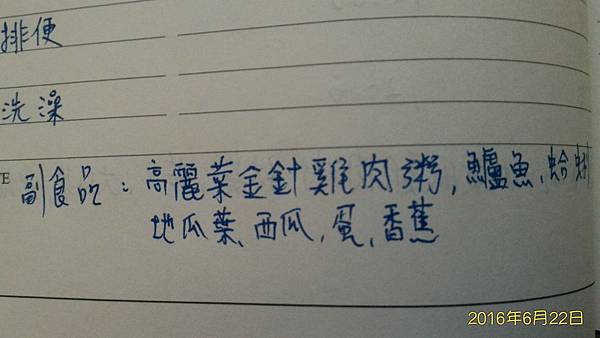 排便
洗澡
副食品：高麗菜金針雞肉粥,鱸魚,蛤蜊
地瓜葉、西瓜,蛋,香蕉
2016年6月22日